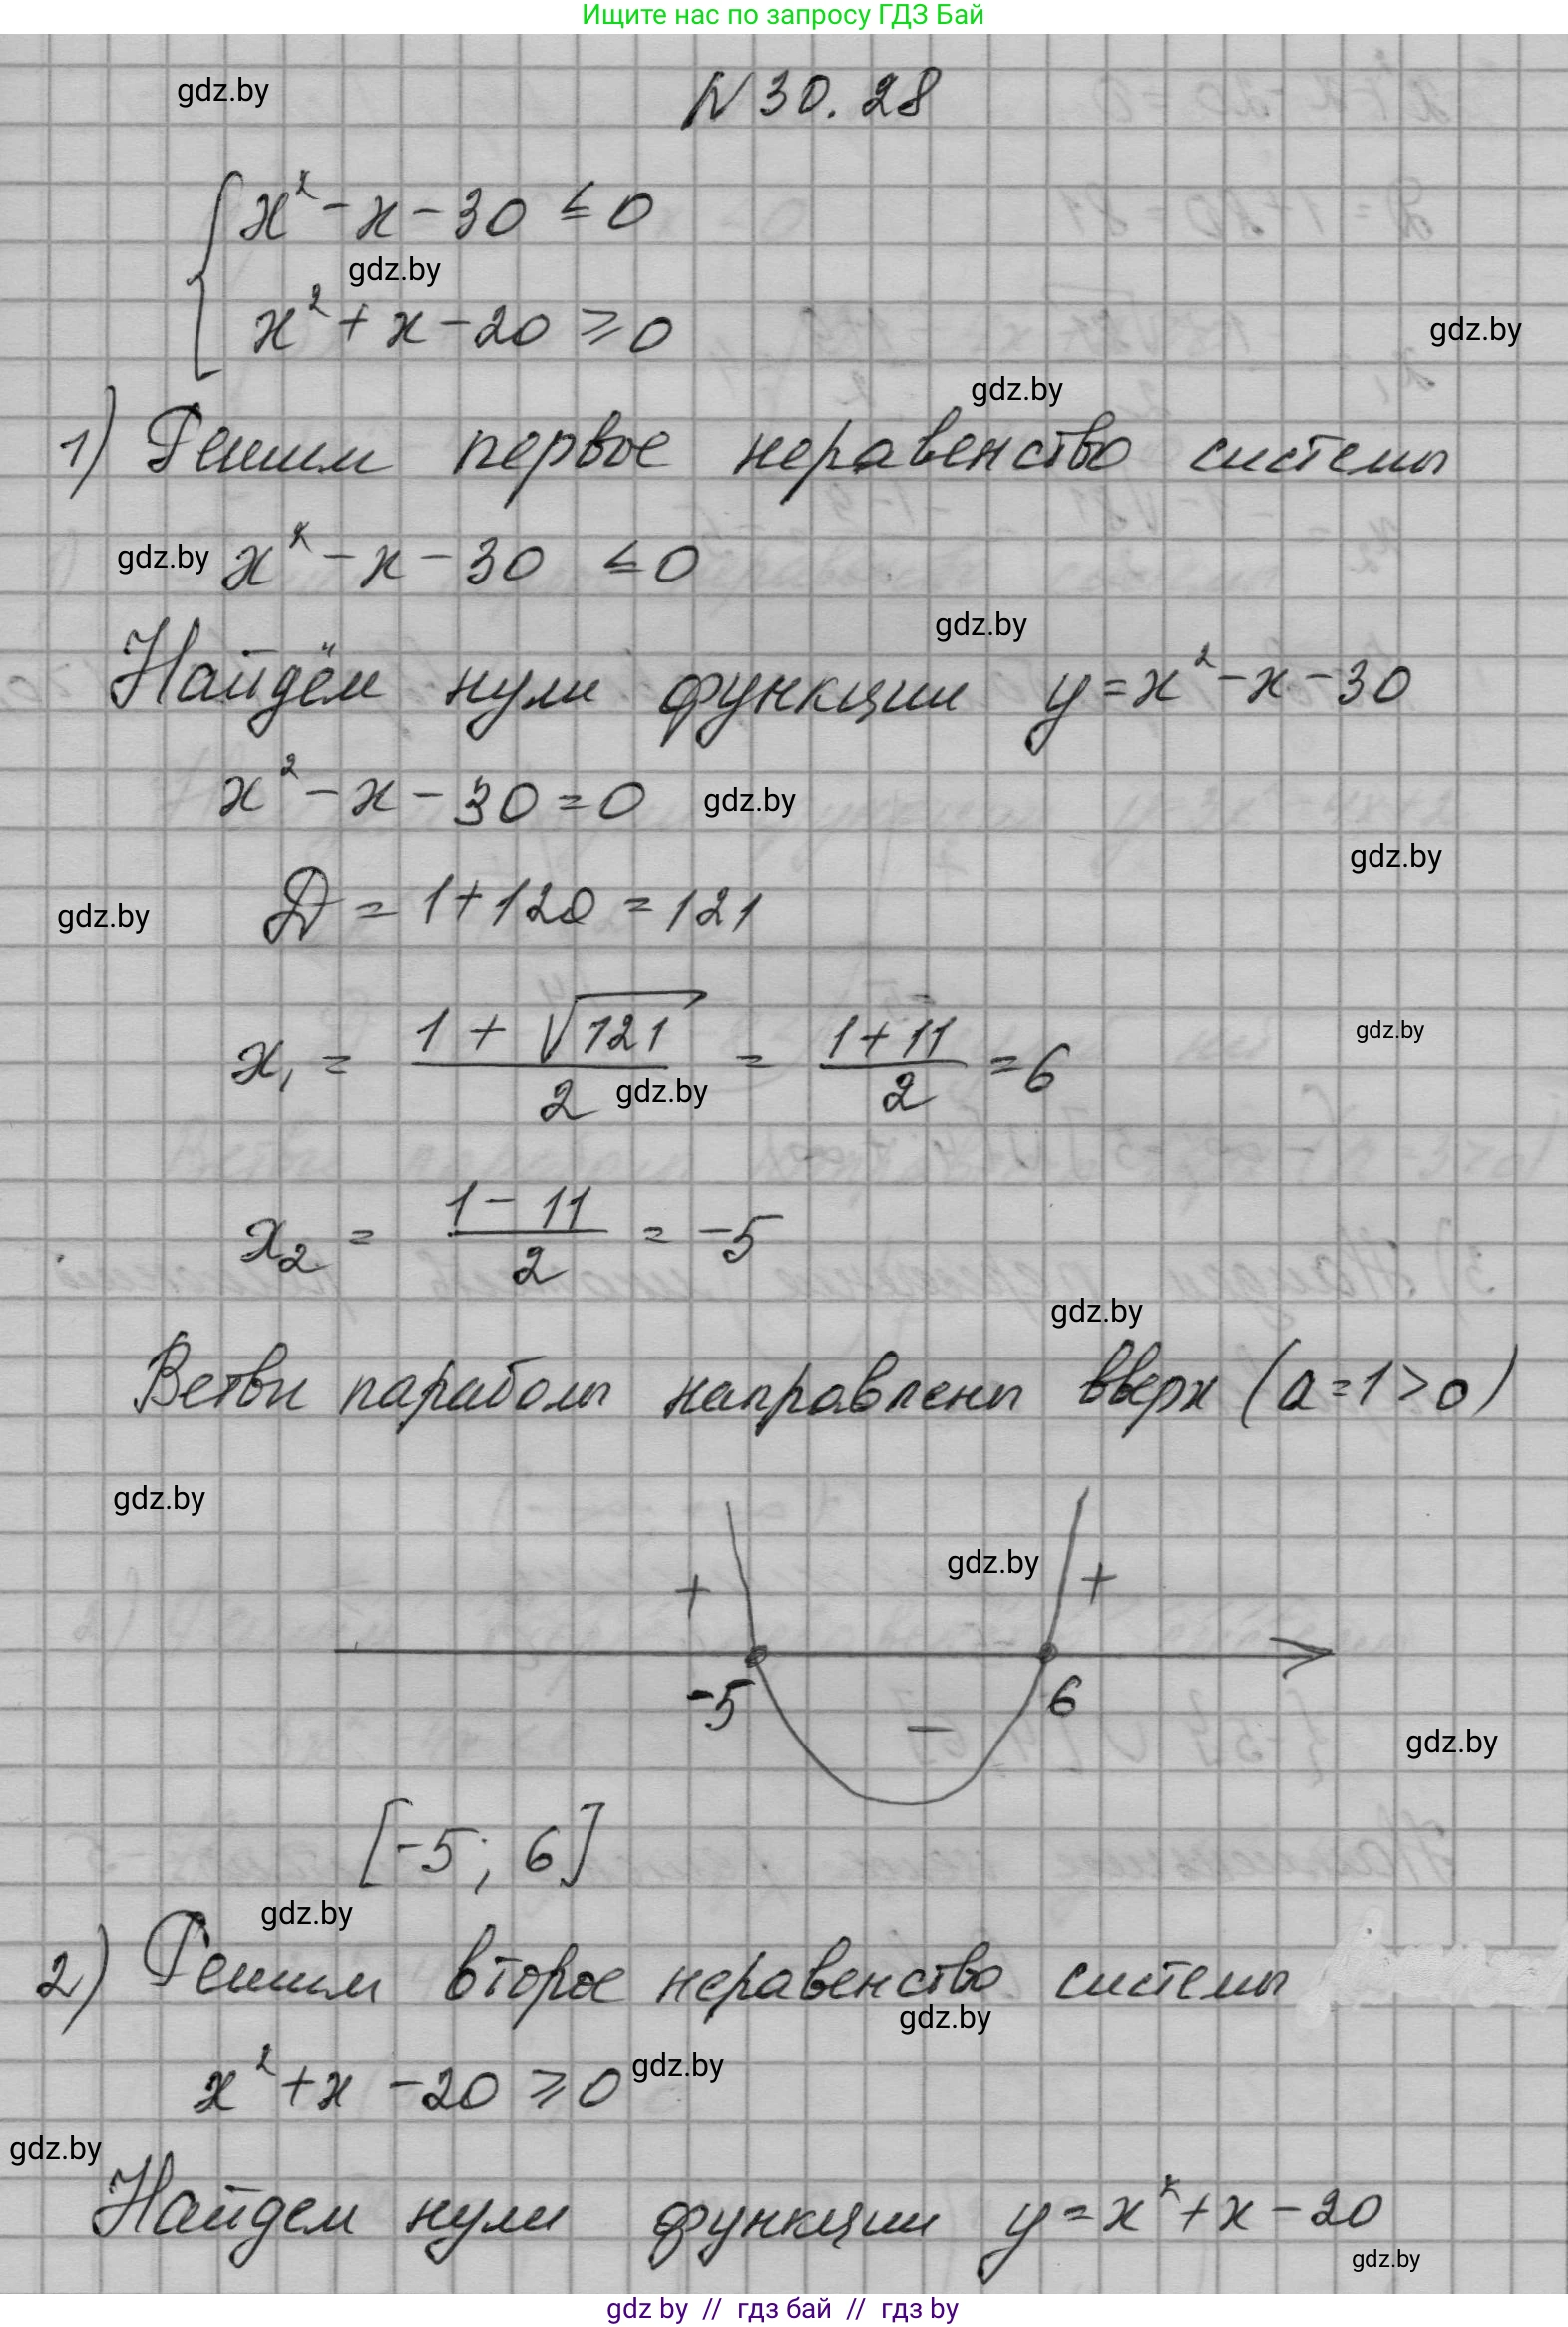 Ищите нас по запросу ГДЗ Бай
gdz.by
N 30. 28
x² - x - 30 ≤ 0
gdz.by
x² + x - 20 ≥ 0
gdz.by
gdz.by
1) Решим первое неравенство системы
gdz.by x² - x - 30 ≤ 0
gdz.by
Найдём нули функции y = x² - x - 30
x² - x - 30 = 0 gdz.by
gdz.by
gdz.by D = 1 + 120 = 121
x₁ = (1 + √121)/2 = (1 + 11)/2 = 6
gdz.by
gdz.by
x₂ = (1 - 11)/2 = -5
gdz.by
Ветви параболы направлены вверх (a = 1 > 0)
gdz.by
gdz.by
+ +
-5 - 6
gdz.by
[-5; 6]
gdz.by
2) Решим второе неравенство системы
gdz.by
x² + x - 20 ≥ 0 gdz.by
gdz.by
Найдем нули функции y = x² + x - 20
gdz.by
gdz by // гдз бай // гдз by